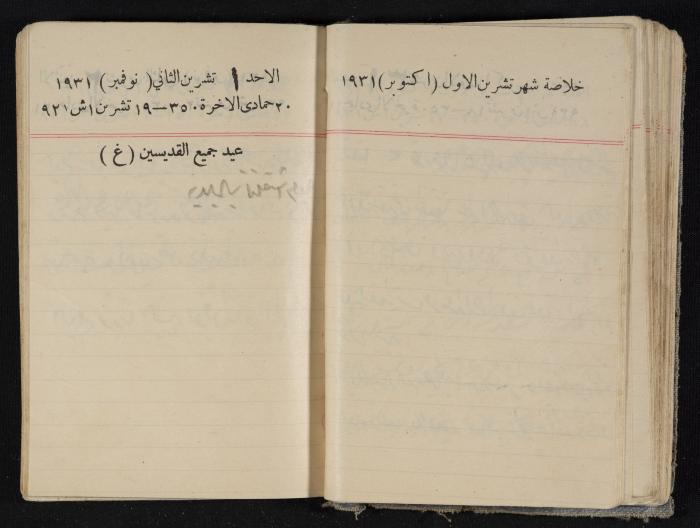 خلاصة شهر تشرين الاول (اكتوبر) ١٩٣١
الاحد ١ تشرين الثاني (نوفمبر) ١٩٣١
٢٠ جمادى الاخرة ١٣٥٠ — ١٩ تشرين ١ ش ٩٢١
عيد جميع القديسين (غ)